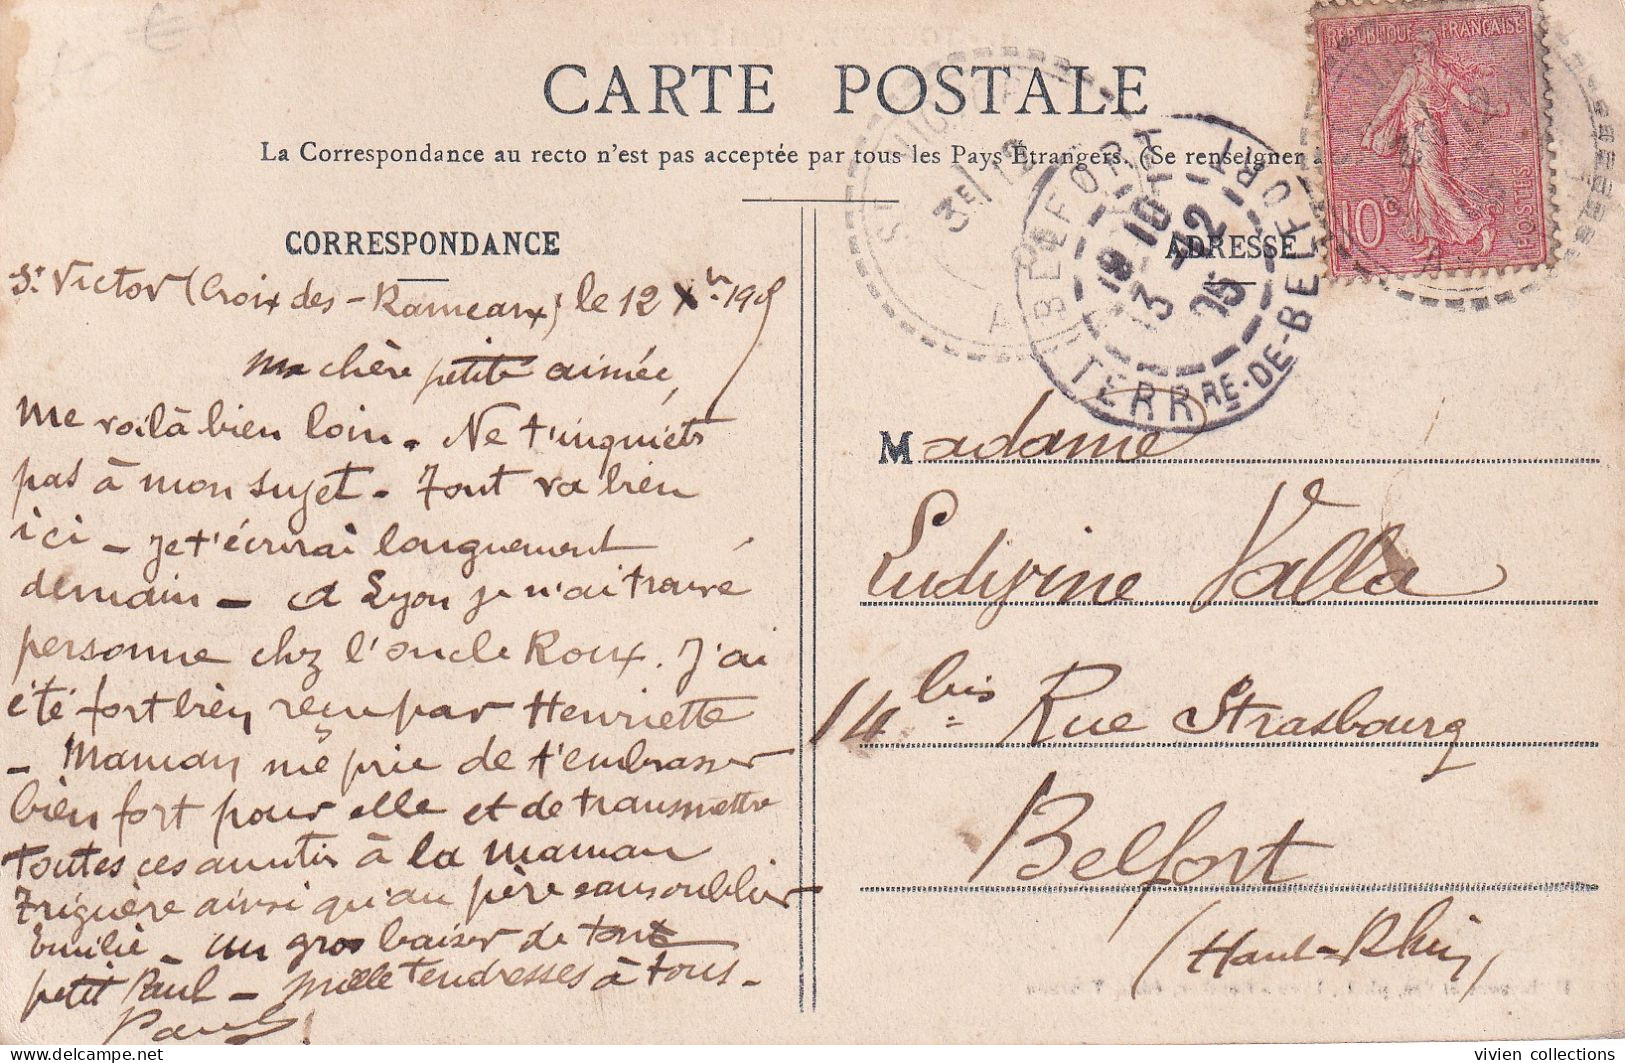 CARTE POSTALE
La Correspondance au recto n'est pas acceptée par tous les Pays Étrangers. (Se renseigner à
CORRESPONDANCE
St Victor (Croix des-Rameaux) le 12 Xbre 1905
Ma chère petite aimée,
Me voilà bien loin. Ne t'inquiets
pas à mon sujet. Tout va bien
ici - Je t'écrirai longuement
demain - A Lyon je n'ai trouvé
personne chez l'oncle Roux. J'ai
été fort bien reçu par Henriette
- Maman me prie de t'embrasser
bien fort pour elle et de transmettre
toutes ces amitiés à la maman
ainsi qu'au père sans oublier
Emilie - un gros baiser de ton
petit Paul - Mille tendresses à tous -
Paul
RÉPUBLIQUE FRANÇAISE
10c
POSTES
3E/12
BELFORT
BELFORT
13 -12
05
TERRRE-DE-BELFORT
ADRESSE
Madame
Ludivine Valla
14 bis Rue Strasbourg
Belfort
(Haut-Rhin)
vivien collections